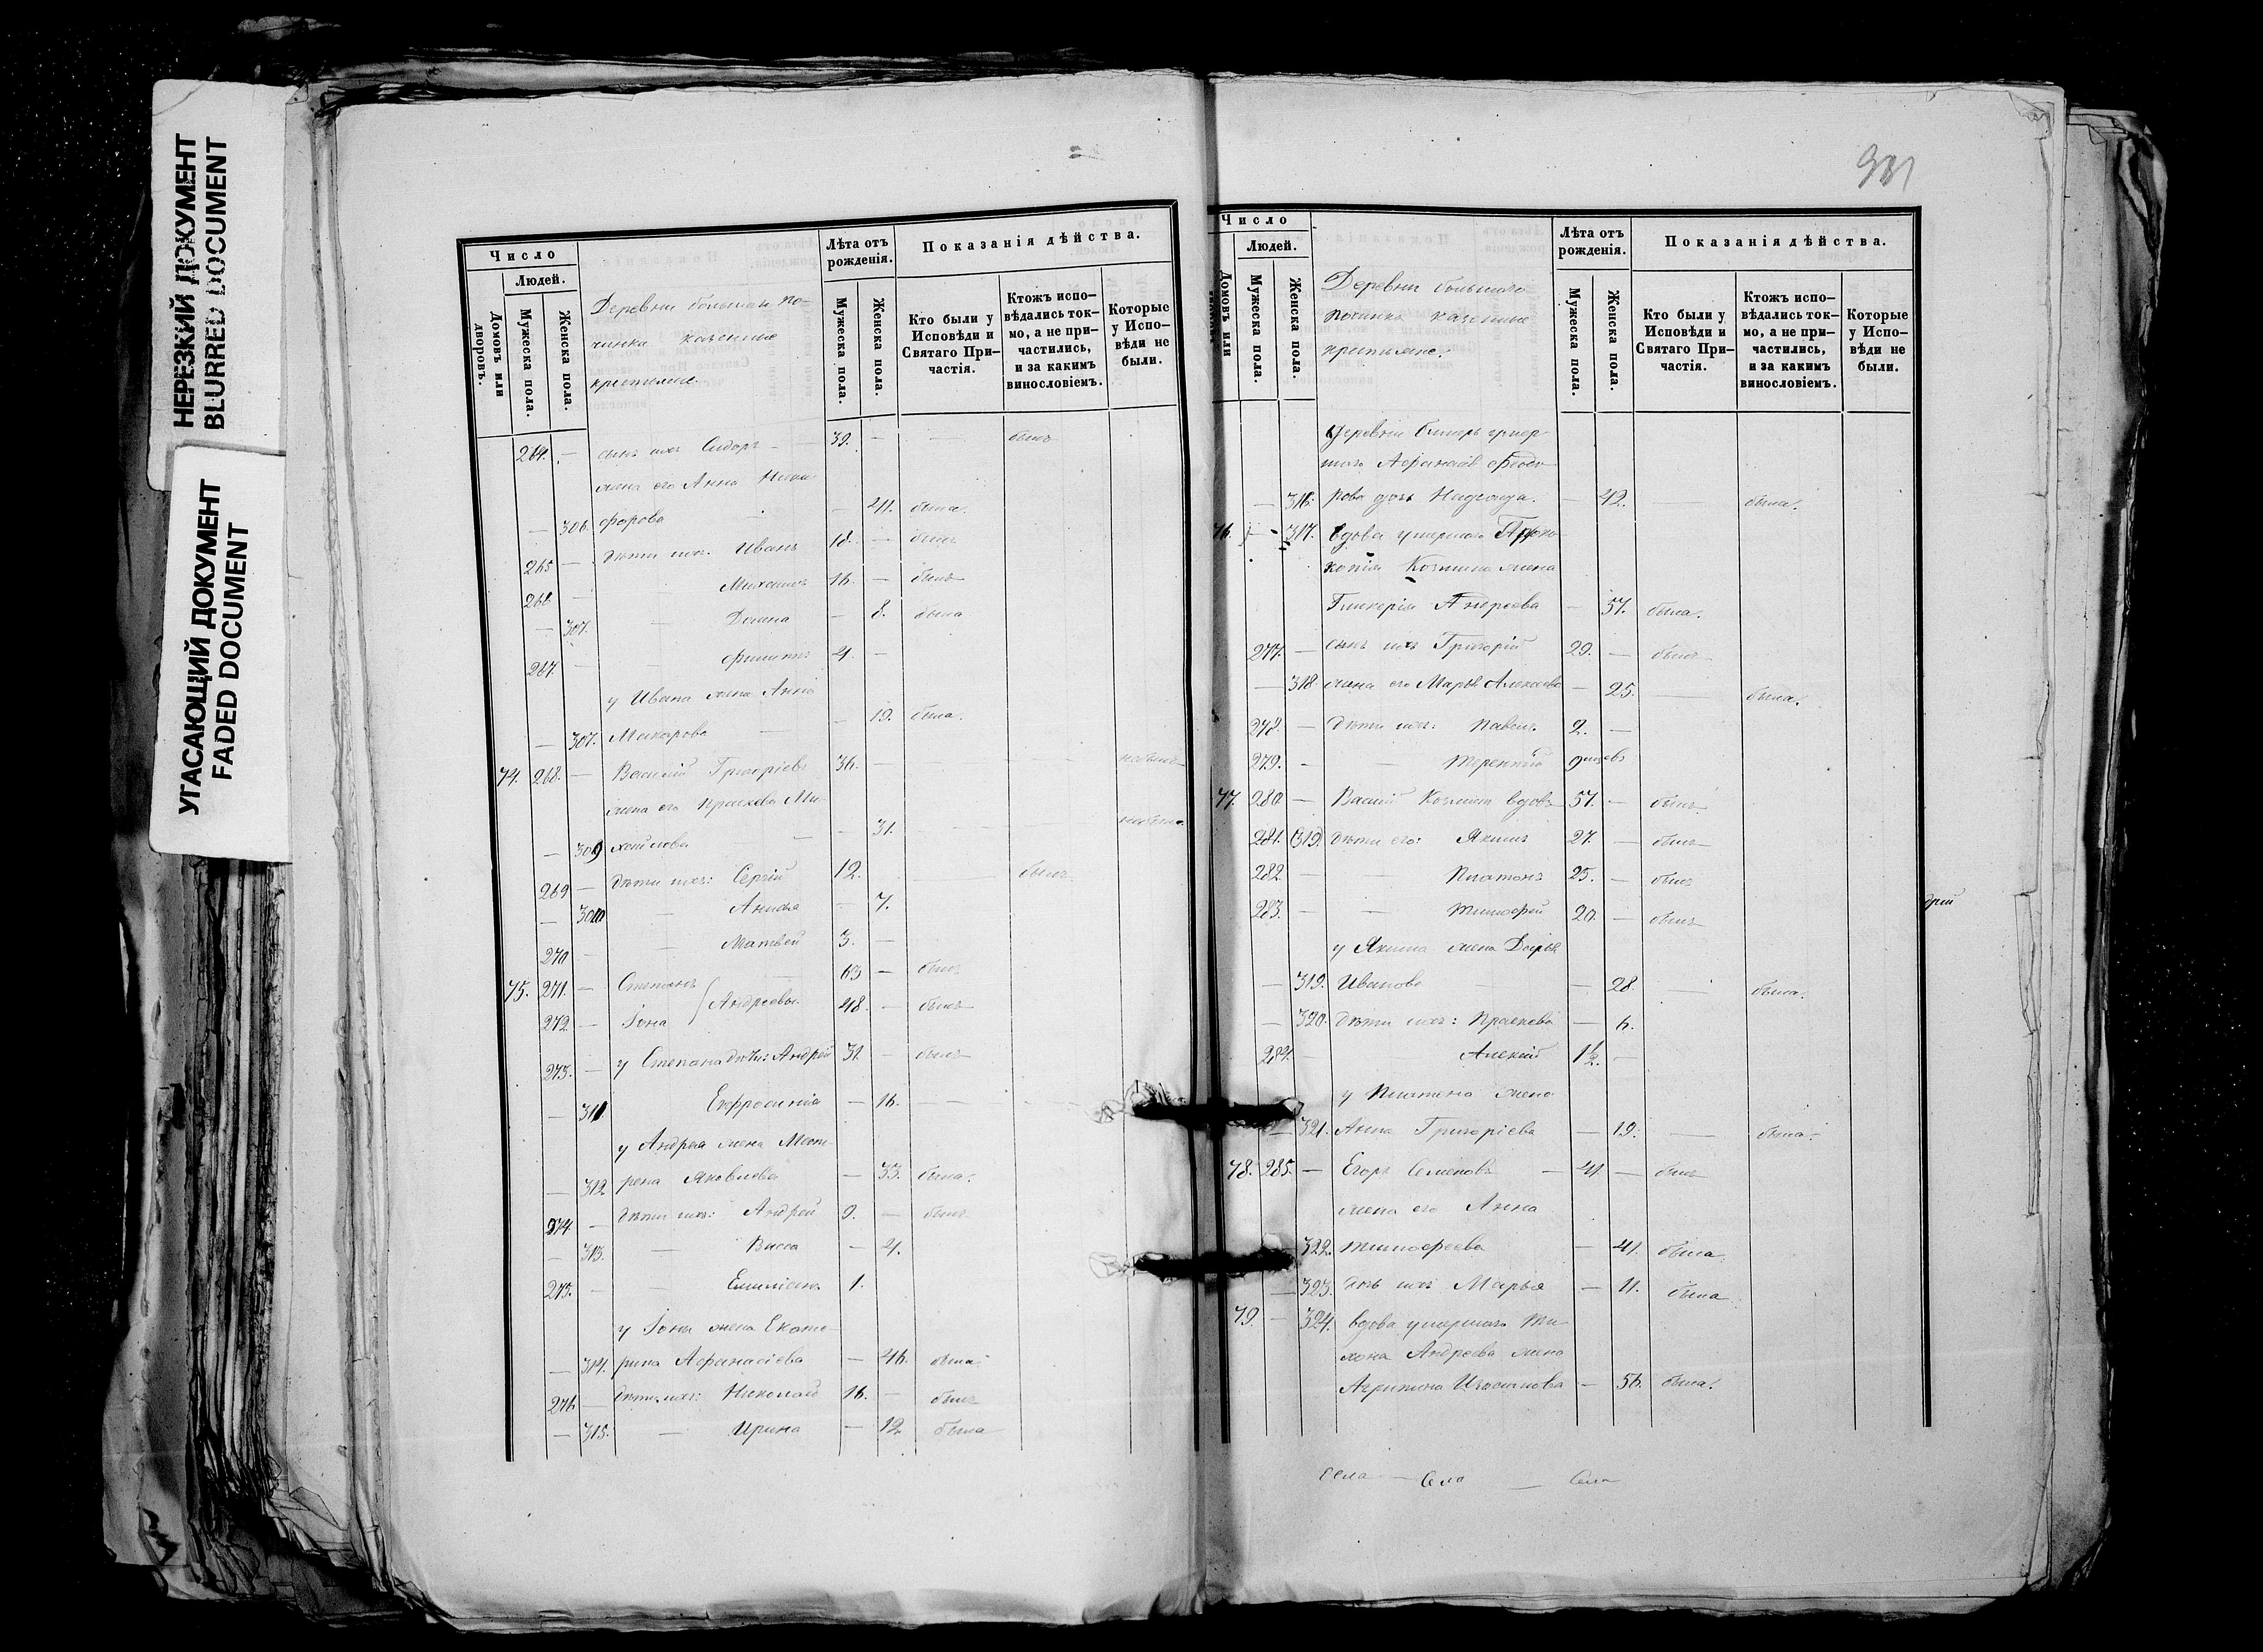 НЕРЕЗКИЙ ДОКУМЕНТ
BLURRED DOCUMENT
УГАСАЮЩИЙ ДОКУМЕНТ
FADED DOCUMENT
Число
Людей.
Домовъ или дворовъ.
Мужеска пола.
Женска пола.
Деревни большаго по-
чинка казенные
крестьяне.
Лѣта отъ рожденія.
Мужеска пола.
Женска пола.
Показанія дѣйства.
Кто были у Исповѣди и Святаго При-частія.
Ктожъ испо-вѣдались ток-мо, а не при-частились, и за какимъ винословіемъ.
Которые у Испо-вѣди не были.
264. — сынъ ихъ Сидоръ — 39. — — былъ
жена его Анна Ники-
— 306. форова — 41. была.
265 — дѣти ихъ. Иванъ 18. — былъ
266 — Михаилъ 16. — былъ
— 307. — 8. была
267. — — Филиппъ 4. —
у Ивана жена Анна
— 307. Макарова — 19. была.
74. 268. — Василій Григорьевъ 36. — небылъ
жена его Прасковья Ми-
— 309 хайлова — 31. небыла.
269 — дѣти ихъ: Сергій 12. — былъ
— Анисья — 7.
270 — Матвей 3. —
75. 271. — Степанъ 63 — былъ
272 — Іона Андреевы 48. — былъ
273. — у Степана дѣти: Андрей 31. — былъ
— 311 Евфросинія — 16. — —
у Андрея жена Мат-
— 312 рена Яковлева — 33. была.
274 — дѣти ихъ: Андрей 9. — былъ
— 313. — Васса — 4.
275. — — Емиліанъ 1.
у Іоны жена Екате-
— 314. рина Афанасіева — 46. была.
276 — дѣти ихъ: Николай 16. — былъ
— 315. — Ирина — 12 была
931
Число
Людей.
Домовъ или
Мужеска пола.
Женска пола.
Деревни большаго
починка казенные
крестьяне.
Лѣта отъ рожденія.
Мужеска пола.
Женска пола.
Показанія дѣйства.
Кто были у Исповѣди и Святаго При-частія.
Ктожъ испо-вѣдались ток-мо, а не при-частились, и за какимъ винословіемъ.
Которые у Испо-вѣди не были.
деревни
шаго Афанасія Феодо-
— 316. рова дочь Надежда. — 42. — была.
76. — 317. вдова умершаго Проко-
копія Козмина жена
Гликерія Андреева — 57. была.
277. — сынъ ихъ Григорій 29. — былъ
— 318. жена его Марья Алексѣева — 25. — была.
278. — дѣти ихъ: Павелъ 2. —
279. — — Терентій 9 мцевъ
77. 280 — Василій Козминъ вдовъ 57. — былъ.
281. 319. дѣти его: Якимъ 27. — былъ
282 — — Платонъ 25. — былъ
283. — — Тимофей 20. — былъ
у Якима жена Дарья
— 319. Иванова — 28 — была.
— 320. дѣти ихъ: Прасковья — 6.
284. — Алексій 1½. —
у Платона жена
— 321. Анна Григоріева — 19. — была.
78. 285. — Егоръ Семеновъ — 41 — былъ
жена его Анна
322. Тимофеева — 41. была
— 323. дчь ихъ Марья — 11. была
79. — 324. вдова умершаго Ти-
хона Андреева жена
Агрипина — 56. была.
дрій
Села — Села — Села